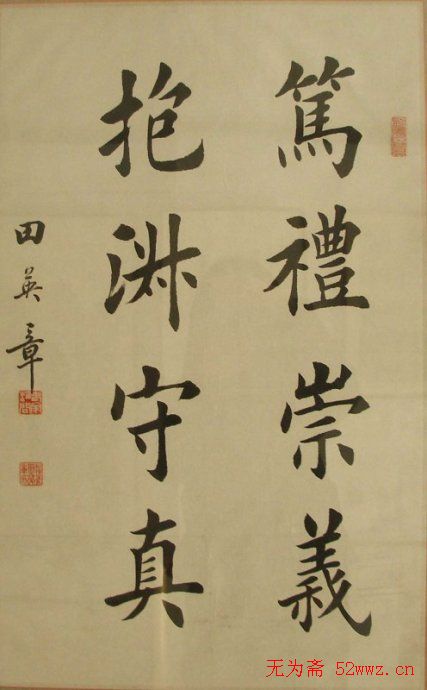 篤禮崇義
抱渊守真
田英章
无为斋 52wwz.cn